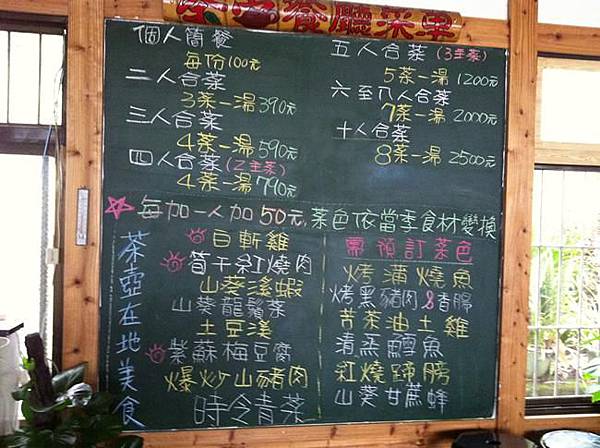 餐廳菜單
個人簡餐
每份100元
二人合菜
3菜一湯390元
三人合菜
4菜一湯590元
四人合菜(2主菜)
4菜一湯790元
五人合菜(3主菜)
5菜一湯1200元
六至八人合菜
7菜一湯2000元
十人合菜
8菜一湯2500元
每加一人加50元,菜色依當季食材變換
茶壺在地美食
白斬雞
筍干紅燒肉
山葵溪蝦
山葵龍鬚菜
土豆渼
紫蘇梅豆腐
爆炒山豬肉
時令青菜
需預訂菜色
烤蒲燒魚
烤黑豬肉&香腸
苦茶油土雞
清蒸鱈魚
紅燒蹄膀
山葵甘蔗蜂